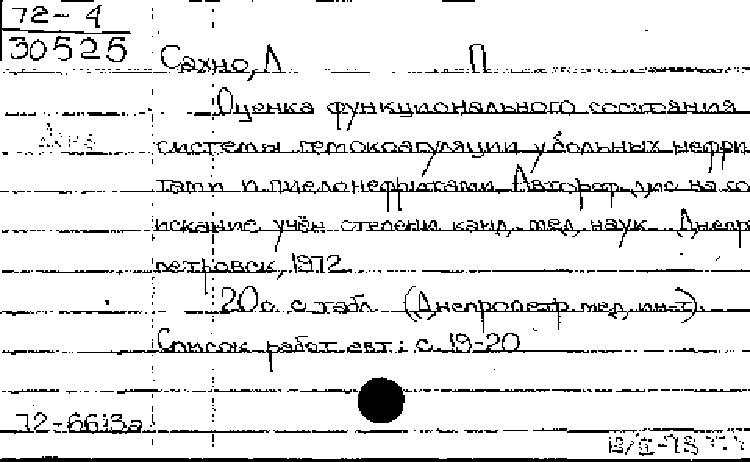 72-4
30525
Сахно, Л П
Оценка функционального состояния
системы гемокоагуляции у больных нефри
тами и пиелонефритами. Автореф. дис на со
искание учён степени канд. мед. наук. Днепро
петровск, 1972.
20с. с табл. (Днепропетр. мед. ин-т).
Список работ авт.: с. 19-20
72-6613а